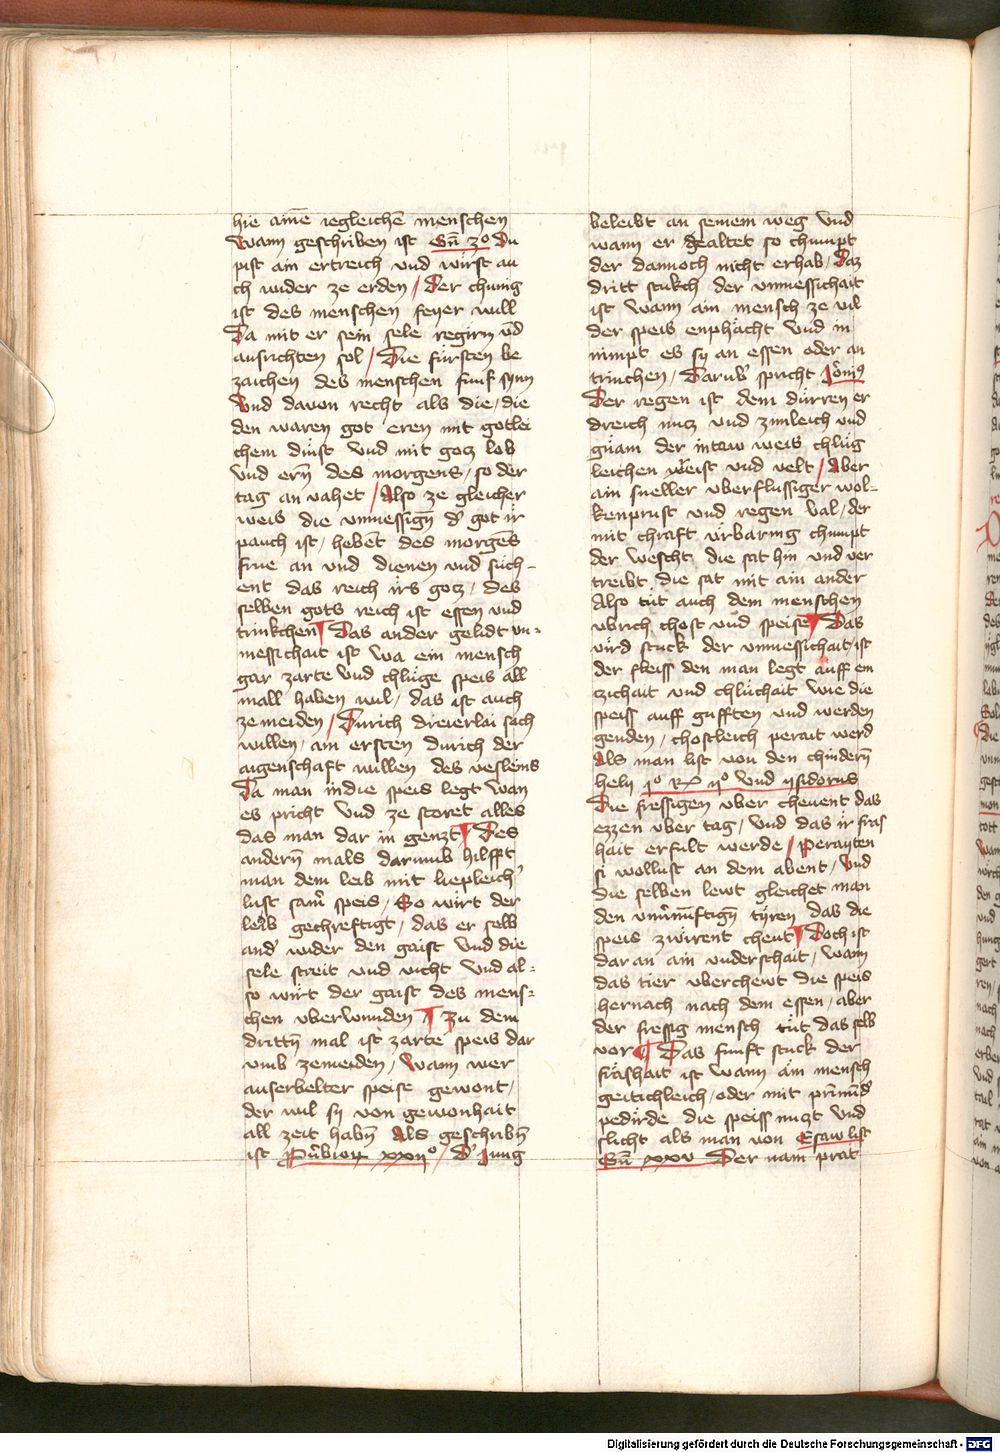 hie aine̅ iegleiche̅ menschen
Wann geschriben ist Gn̅ 3º Du
pist ain ertreich vnd wirst au
ch wider ze erden / Der chunig
ist des menschen feyer will
Da mit er sein sele regirn vn̅d
ausrichten sol / Die fürsten be
zaichen des menschen funf synn
Vnd davon recht als die / die
den waren got eren mit gotlei
chem dinst vnd mit gotz lob
vnd ern̅ des morgens / so der
tag an vahet / Also ze gleicher
weis die vnmessign̅ d' got ir
pauch ist / hebent des morgens
frue an vnd dienen vnd such-
ent das reich irs gotz / des
selben gots reich ist essen vnd
trinkchen ¶ Das ander gelidt vn-
messichait ist wa ein mensch
gar zarte vnd chluge speis all
mall haben wil / das ist auch
ze meiden / Durich dreierlai sach
willen / am ersten durich der
aigenschaft willen des veslems
Da man in die speis legt wan
es pricht vnd ze storet alles
das man dar in genzt ¶ Des
andern̅ mals darumb hilfft
man dem leib mit liepleich'
lust sam̅ speis / So wirt der
leib gechreftigt / das er selb
and' wider den gaist vnd die
sele streit vnd vicht vnd al-
so wirt der gaist des mens-
chen vberwunden ¶ Zu dem
drittn̅ mal ist zarte speis dar
vmb zemeiden / Wann wer
auserbelter speise gewont /
der wil sy von gewonhait
all zeit habn̅ Als geschribn̅
ist xxiiº / D' Jung
beleibt an seinem weg vnd
wann er dealtet so chumpt
der dannoch nicht erhab / Daz
dritt stukch der vnmessichait
ist wann ain mensch ze vil
der speis enphacht vnd in
nimpt es sy an essen oder an
trinchen / Darub' spricht
Der regen ist dem durren er
dreich nucz vnd zimleich vnd
guam der intaw weis chlug
leichen weist vnd velt / Aber
ain sneller vberflussiger wol-
kenprust vnd regen val / der
mit chraft vrbaring chumpt
der wescht die sat hin vnd ver
treibt die sat mit ain ander
Also tut auch dem menschen
vbrich chost vnd speise ¶ Das
vird stuck der vnmessichait / ist
der fleiss den man legt auff em
czichait vnd chluchait wie die
speiss auff gufften vnd werden
genden / chostleich perait werd
Als man list von den chindern̅
hely jº Rº ijº vnd ysidorus
Die fressigen vber chewent das
ezzen vber tag / Vnd das ir fras
hait erfult werde / Perayten
si wollust an dem abent / Vnd
die selben lewt gleichet man
den vnu̅nuftign̅ tyren das die
speis zwirent chewt ¶ Doch ist
dar an ain vnderschait / wann
das tier vberchewt die speis
hernach nach dem essen / aber
der fressig mensch tut das selb
vor ¶ Das funft stuck der
frashait ist wann ain mensch
geitichleich / oder mit
pedirde die speiss nuczt vnd
slicht als man von Esaw list
Gn̅ xxv Der nam prat
Digitalisierung gefördert durch die Deutsche Forschungsgemeinschaft - DFG